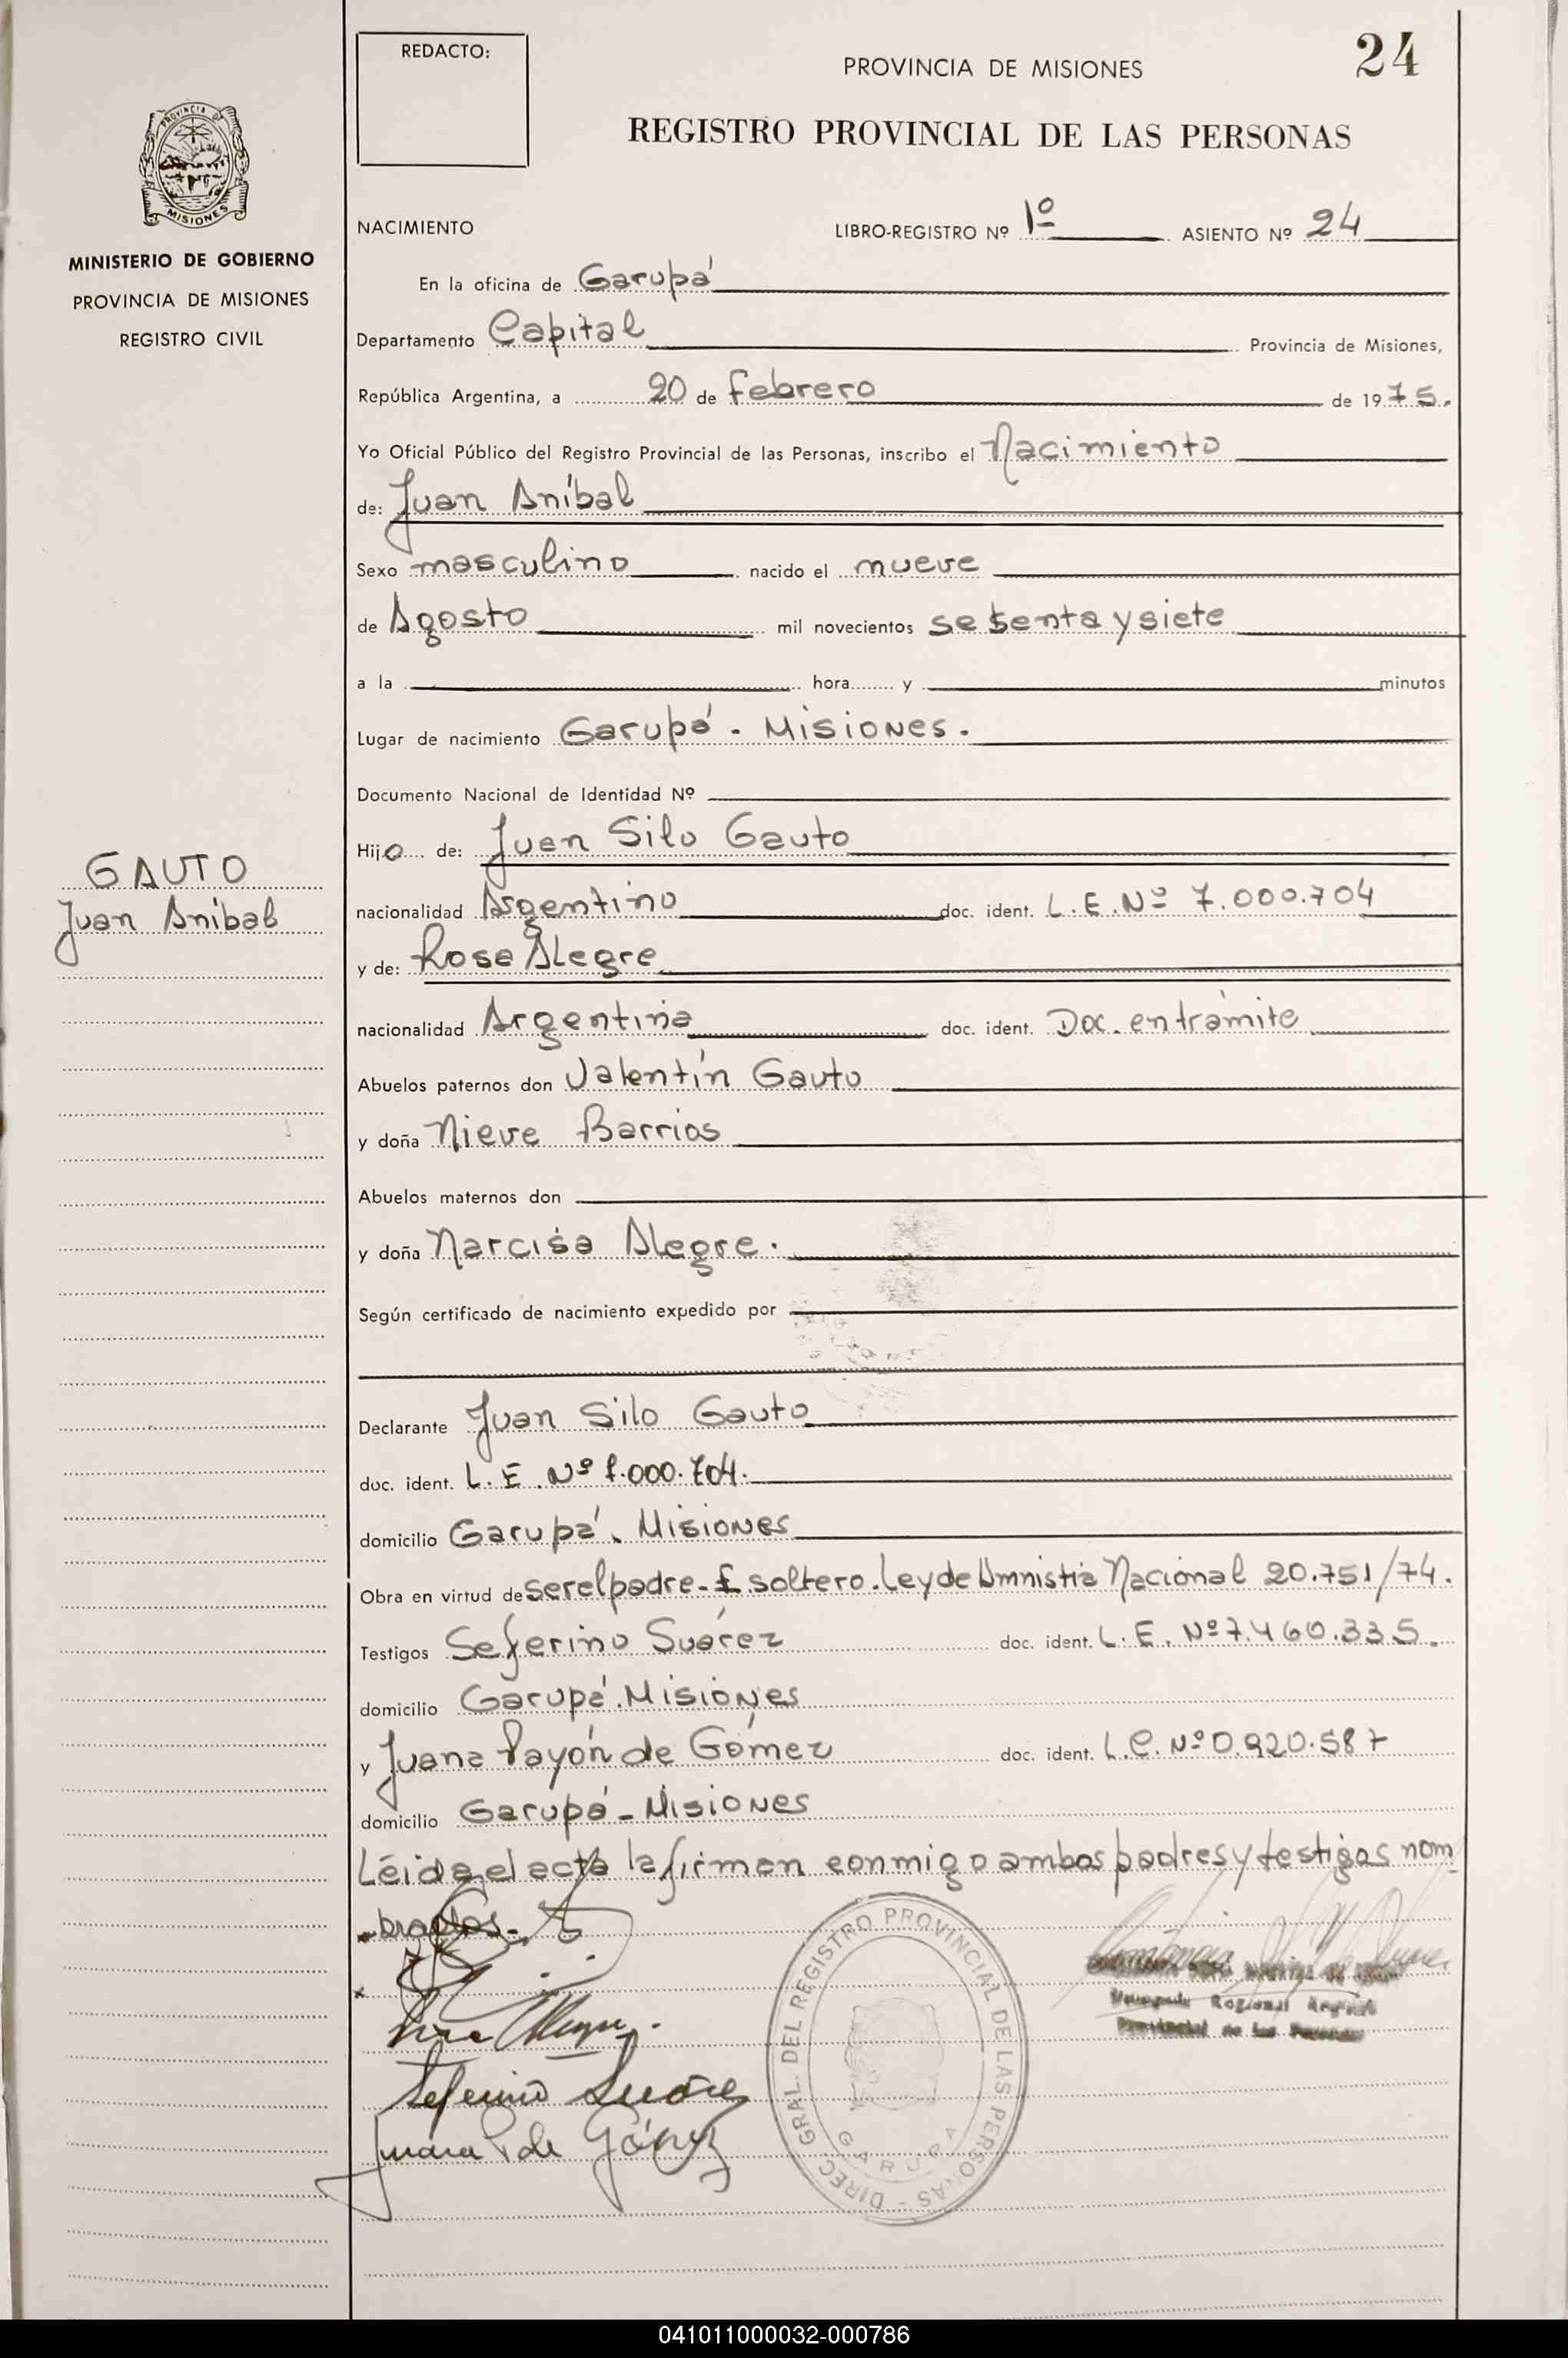 REDACTO:
24
PROVINCIA DE MISIONES
REGISTRO PROVINCIAL DE LAS PERSONAS
PROVINCIA DE
MISIONES
MINISTERIO DE GOBIERNO
PROVINCIA DE MISIONES
REGISTRO CIVIL
GAUTO
Juan Aníbal
NACIMIENTO LIBRO-REGISTRO Nº 1º ASIENTO Nº 24
En la oficina de Garupá
Departamento Capital Provincia de Misiones,
República Argentina, a 20 de febrero de 1975.
Yo Oficial Público del Registro Provincial de las Personas, inscribo el Nacimiento
de: Juan Aníbal
Sexo masculino nacido el nueve
de Agosto mil novecientos setenta y siete
a la hora y minutos
Lugar de nacimiento Garupá - Misiones.
Documento Nacional de Identidad Nº
Hijo de: Juan Silo Gauto
nacionalidad Argentino doc. ident. L.E.Nº 7.000.704
y de: Rosa Alegre
nacionalidad Argentina doc. ident. Doc. en trámite
Abuelos paternos don Valentín Gauto
y doña Nieve Barrios
Abuelos maternos don
y doña Narcisa Alegre.
Según certificado de nacimiento expedido por
Declarante Juan Silo Gauto
doc. ident. L.E.Nº 7.000.704.
domicilio Garupá. Misiones
Obra en virtud de ser el padre - soltero. Ley de Amnistía Nacional 20.751/74.
Testigos Seferino Suárez doc. ident. L.E. Nº 7.460.335.
domicilio Garupá. Misiones
y Juana Payón de Gómez doc. ident. L.C. Nº 0.920.587
domicilio Garupá - Misiones
Léida el acta la firman conmigo ambos padres y testigos nom
brados.-
Seferino Suárez
Juana P de Gómez
DIREC. GRAL. DEL REGISTRO PROVINCIAL DE LAS PERSONAS -
GARUPA
Delegada Regional Registro
Provincial de las Personas
041011000032-000786